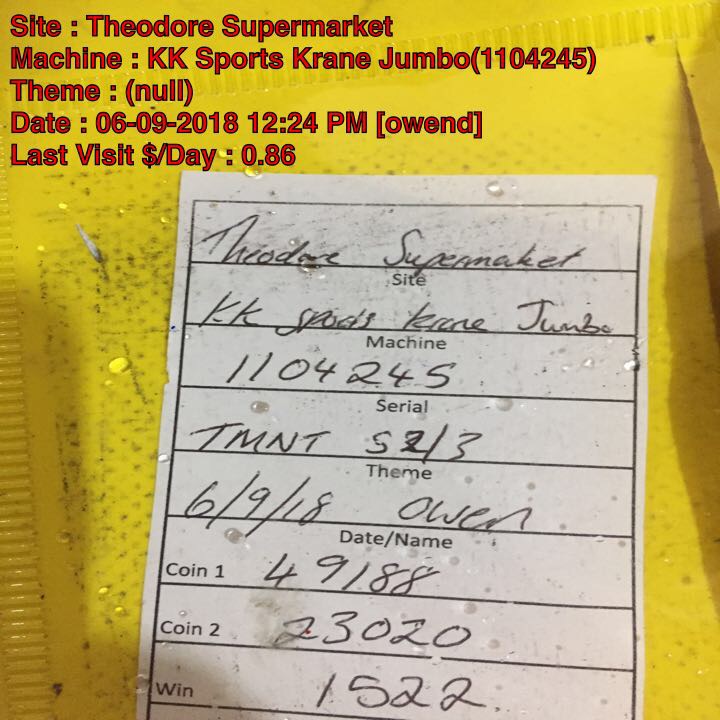 Site : Theodore Supermarket
Machine : KK Sports Krane Jumbo(1104245)
Theme : (null)
Date : 06-09-2018 12:24 PM [owend]
Last Visit $/Day : 0.86
Theodore Supermaket
Site
KK sports krane Jumbo
Machine
1104245
Serial
TMNT S2/3
Theme
6/9/18 Owen
Date/Name
Coin 1 49188
Coin 2 23020
Win 1522